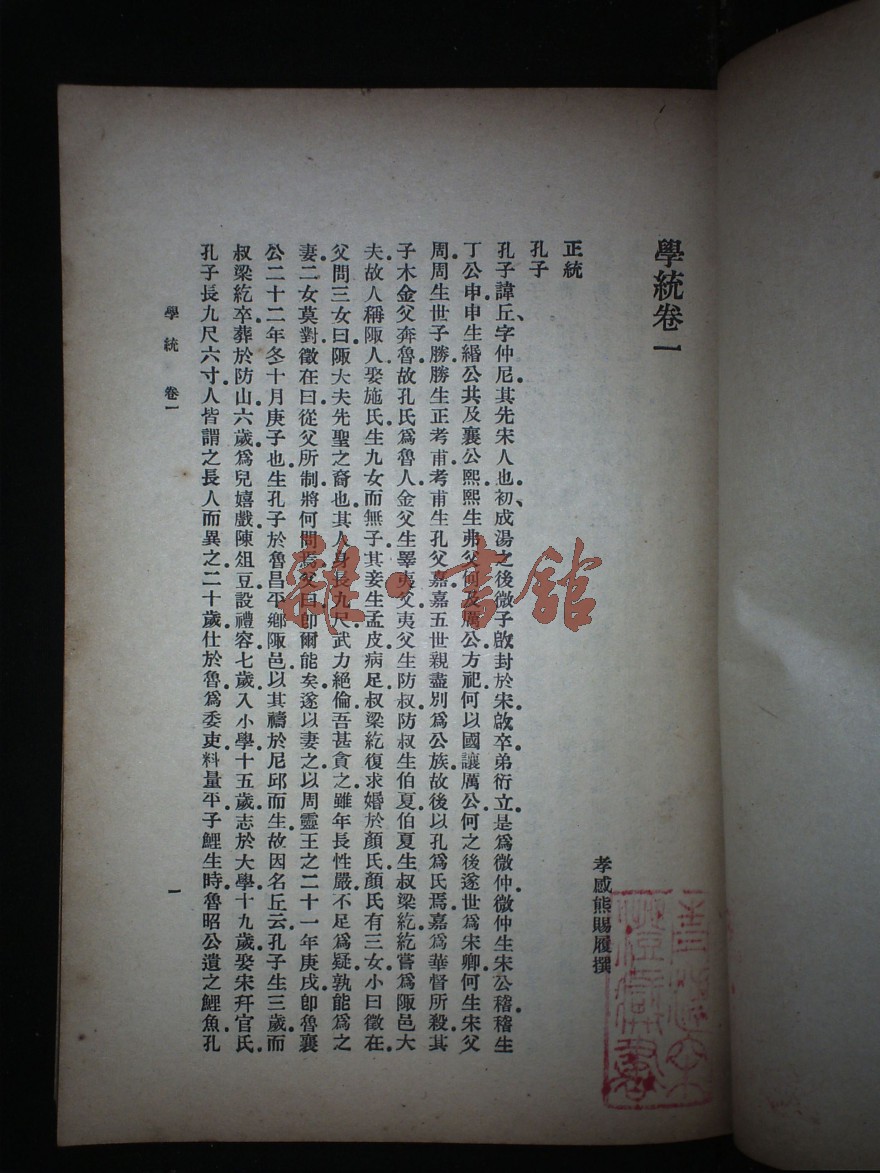 學統卷一
孝感熊賜履撰
正統
孔子
孔子諱丘、字仲尼。其先宋人也。初、成湯之後微子啟封於宋。啟卒弟衍立。是爲微仲。微仲生宋公稽。稽生
丁公申。申生緡公共及襄公熙。熙生弗父何及厲公方祀。何以國讓厲公。何之後遂世爲宋卿。何生宋父
周。周生世子勝。勝生正考甫。考甫生孔父嘉。嘉五世親盡。別爲公族。故後以孔爲氏焉。嘉爲華督所殺。其
子木金父奔魯。故孔氏爲魯人。金父生睪夷父。夷父生防叔。防叔生伯夏。伯夏生叔梁紇。紇嘗爲陬邑大
夫。故人稱陬人。娶施氏。生九女而無子。其妾生孟皮。病足。叔梁紇復求婚於顏氏。顏氏有三女。小曰徵在。
父問三女曰。陬大夫先聖之裔也。其人身長九尺。武力絕倫。吾甚貪之。雖年長性嚴。不足爲疑。孰能爲之
妻。二女莫對。徵在曰。從父所制。將何問焉。父曰。卽爾能矣。遂以妻之。以周靈王之二十一年庚戌。卽魯襄
公二十二年冬十月庚子也。生孔子於魯昌平鄉陬邑。以其禱於尼邱而生。故因名丘云。孔子生三歲而
叔梁紇卒。葬於防山。六歲爲兒嬉戲。陳俎豆。設禮容。七歲入小學。十五歲志於大學。十九歲娶宋幵官氏。
孔子長九尺六寸。人皆謂之長人而異之。二十歲仕於魯爲委吏。料量平。子鯉生。時魯昭公遺之鯉魚。孔
學統 卷一
一
雜·書館